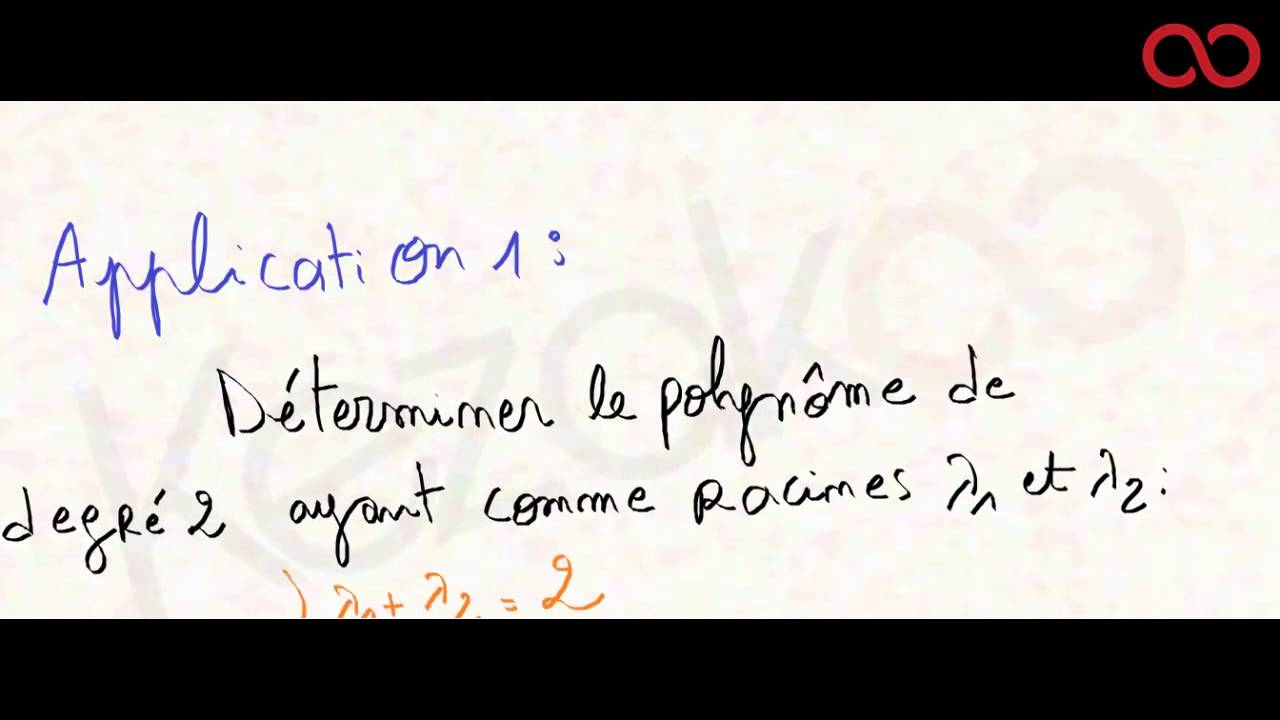 Application 1:
Déterminer le polynôme de
degré 2 ayant comme racines λ1 et λ2:
λ1 + λ2 = 2
Kezakoo